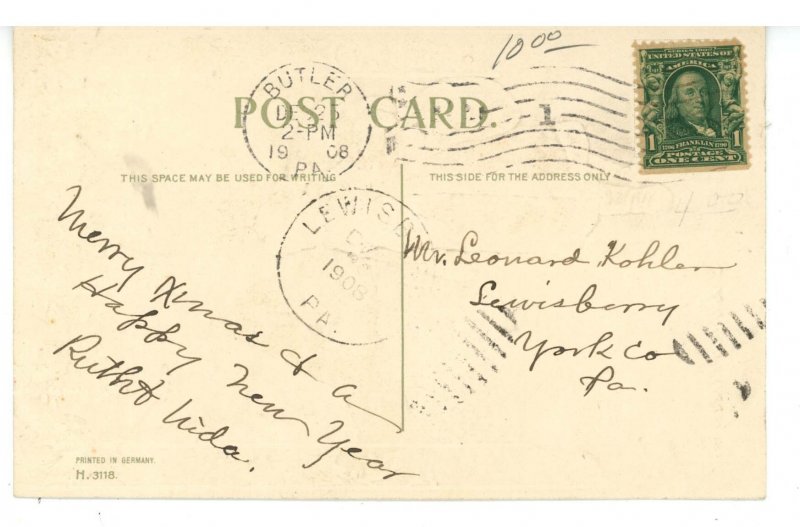 10 00
SERIES 1902
UNITED STATES OF
AMERICA
1 FRANKLIN 1
1706 1790
POSTAGE
ONE CENT
BUTLER
DEC 25
2-PM
19 08
PA.
POST CARD.
1
THIS SPACE MAY BE USED FOR WRITING
THIS SIDE FOR THE ADDRESS ONLY
4 00
LEWISB
1908
PA.
Merry Xmas & a
Happy New Year
Ruth & Nida.
Mr. Leonard Kohler
Lewisberry
York Co
Pa.
PRINTED IN GERMANY.
H. 3118.